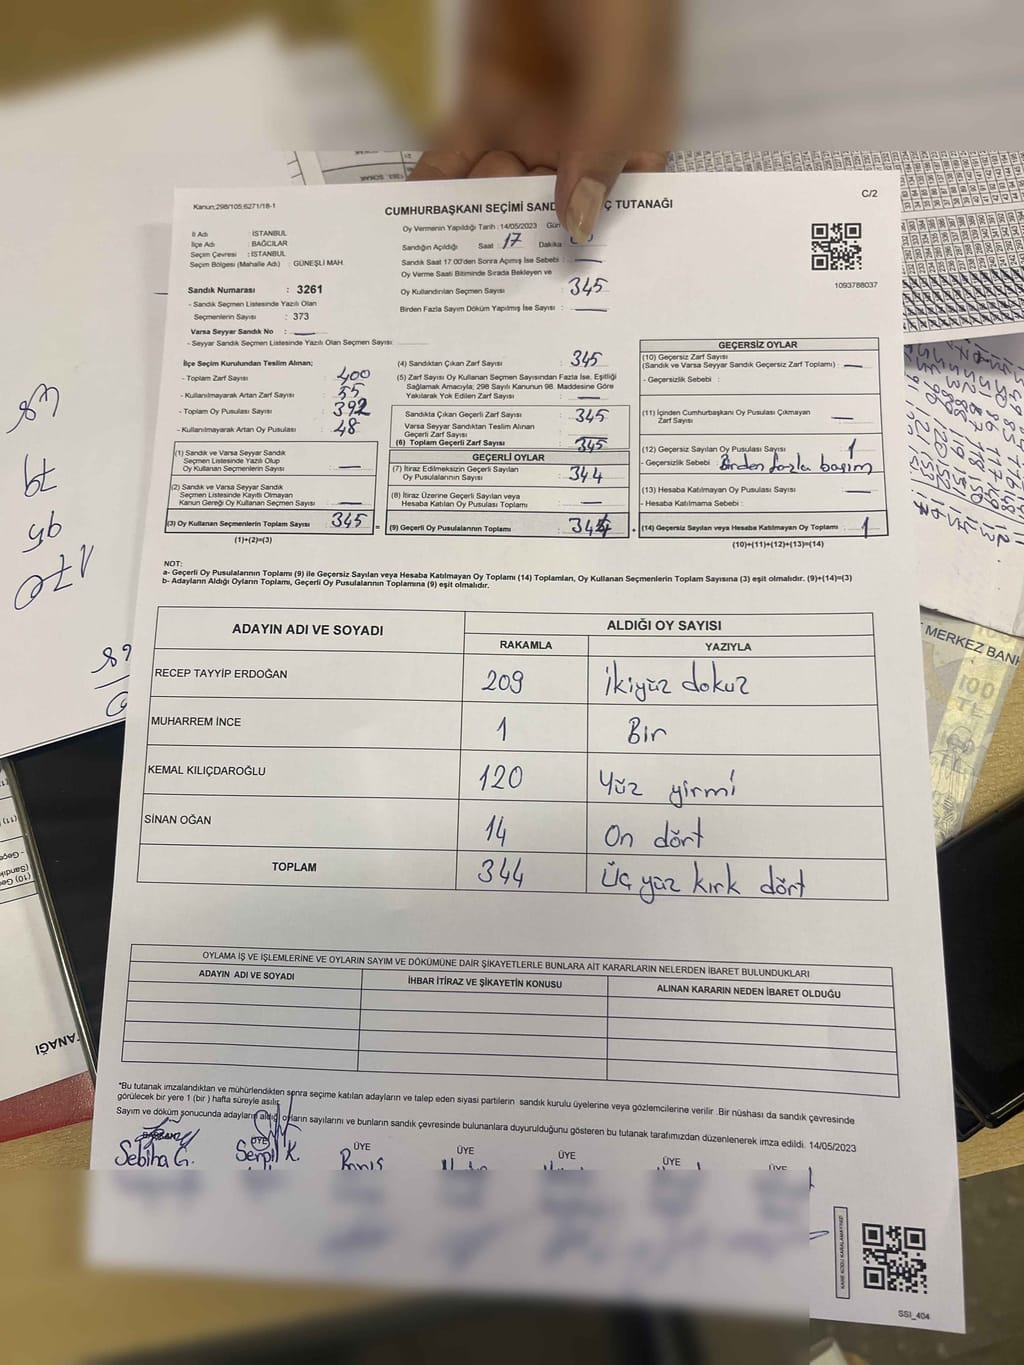 C/2
Kanun;298/105;6271/18-1
CUMHURBAŞKANI SEÇİMİ SAND Ç TUTANAĞI
İl Adı : İSTANBUL
İlçe Adı : BAĞCILAR
Seçim Çevresi : İSTANBUL
Seçim Bölgesi (Mahalle Adı) : GÜNEŞLİ MAH.
Oy Vermenin Yapıldığı Tarih :14/05/2023 Gün
Sandığın Açıldığı Saat 17 Dakika
Sandık Saat 17:00'den Sonra Açımış İse Sebebi :
Oy Verme Saati Bitiminde Sırada Bekleyen ve
Oy Kullandırılan Seçmen Sayısı : 345
Birden Fazla Sayım Döküm Yapılmış İse Sayısı :
1093788037
Sandık Numarası : 3261
- Sandık Seçmen Listesinde Yazılı Olan
Seçmenlerin Sayısı : 373
Varsa Seyyar Sandık No :
- Seyyar Sandık Seçmen Listesinde Yazılı Olan Seçmen Sayısı:
İlçe Seçim Kurulundan Teslim Alınan;
- Toplam Zarf Sayısı : 400
- Kullanılmayarak Artan Zarf Sayısı : 55
- Toplam Oy Pusulası Sayısı : 392
- Kullanılmayarak Artan Oy Pusulası : 48
(1) Sandık ve Varsa Seyyar Sandık
Seçmen Listesinde Yazılı Olup
Oy Kullanan Seçmenlerin Sayısı :
(2) Sandık ve Varsa Seyyar Sandık
Seçmen Listesinde Kayıtlı Olmayan
Kanun Gereği Oy Kullanan Seçmen Sayısı :
(3) Oy Kullanan Seçmenlerin Toplam Sayısı : 345 =
(1)+(2)=(3)
(4) Sandıktan Çıkan Zarf Sayısı : 345
(5) Zarf Sayısı Oy Kullanan Seçmen Sayısından Fazla İse, Eşitliği
Sağlamak Amacıyla; 298 Sayılı Kanunun 98. Maddesine Göre
Yakılarak Yok Edilen Zarf Sayısı :
Sandıkta Çıkan Geçerli Zarf Sayısı : 345
Varsa Seyyar Sandıktan Teslim Alınan
Geçerli Zarf Sayısı :
(6) Toplam Geçerli Zarf Sayısı : 345
GEÇERLİ OYLAR
(7) İtiraz Edilmeksizin Geçerli Sayılan
Oy Pusulalarının Sayısı : 344
(8) İtiraz Üzerine Geçerli Sayılan veya
Hesaba Katılan Oy Pusulası Toplamı :
(9) Geçerli Oy Pusulalarının Toplamı : 344 +
GEÇERSİZ OYLAR
(10) Geçersiz Zarf Sayısı
(Sandık ve Varsa Seyyar Sandık Geçersiz Zarf Toplamı) :
- Geçersizlik Sebebi :
(11) İçinden Cumhurbaşkanı Oy Pusulası Çıkmayan
Zarf Sayısı :
(12) Geçersiz Sayılan Oy Pusulası Sayısı : 1
- Geçersizlik Sebebi : Birden fazla basım
(13) Hesaba Katılmayan Oy Pusulası Sayısı :
- Hesaba Katılmama Sebebi :
(14) Geçersiz Sayılan veya Hesaba Katılmayan Oy Toplamı : 1
(10)+(11)+(12)+(13)=(14)
NOT:
a- Geçerli Oy Pusulalarının Toplamı (9) ile Geçersiz Sayılan veya Hesaba Katılmayan Oy Toplamı (14) Toplamları, Oy Kullanan Seçmenlerin Toplam Sayısına (3) eşit olmalıdır. (9)+(14)=(3)
b- Adayların Aldığı Oyların Toplamı, Geçerli Oy Pusulalarının Toplamına (9) eşit olmalıdır.
ADAYIN ADI VE SOYADI ALDIĞI OY SAYISI
RAKAMLA YAZIYLA
RECEP TAYYİP ERDOĞAN 209 İkiyüz dokuz
MUHARREM İNCE 1 Bir
KEMAL KILIÇDAROĞLU 120 Yüz yirmi
SİNAN OĞAN 14 On dört
TOPLAM 344 Üç yüz kırk dört
OYLAMA İŞ VE İŞLEMLERİNE VE OYLARIN SAYIM VE DÖKÜMÜNE DAİR ŞİKAYETLERLE BUNLARA AİT KARARLARIN NELERDEN İBARET BULUNDUKLARI
ADAYIN ADI VE SOYADI İHBAR İTİRAZ VE ŞİKAYETİN KONUSU ALINAN KARARIN NEDEN İBARET OLDUĞU
*Bu tutanak imzalandıktan ve mühürlendikten sonra seçime katılan adayların ve talep eden siyasi partilerin sandık kurulu üyelerine veya gözlemcilerine verilir .Bir nüshası da sandık çevresinde
görülecek bir yere 1 (bir ) hafta süreyle asılır.
Sayım ve döküm sonucunda adayların aldığı oyların sayılarını ve bunların sandık çevresinde bulunanlara duyurulduğunu gösteren bu tutanak tarafımızdan düzenlenerek imza edildi. 14/05/2023
BAŞKAN ÜYE ÜYE ÜYE ÜYE ÜYE ÜYE
Sebiha G. Serpil K.
SSI_404
MERKEZ BANK
100
TL
48
79
95
170